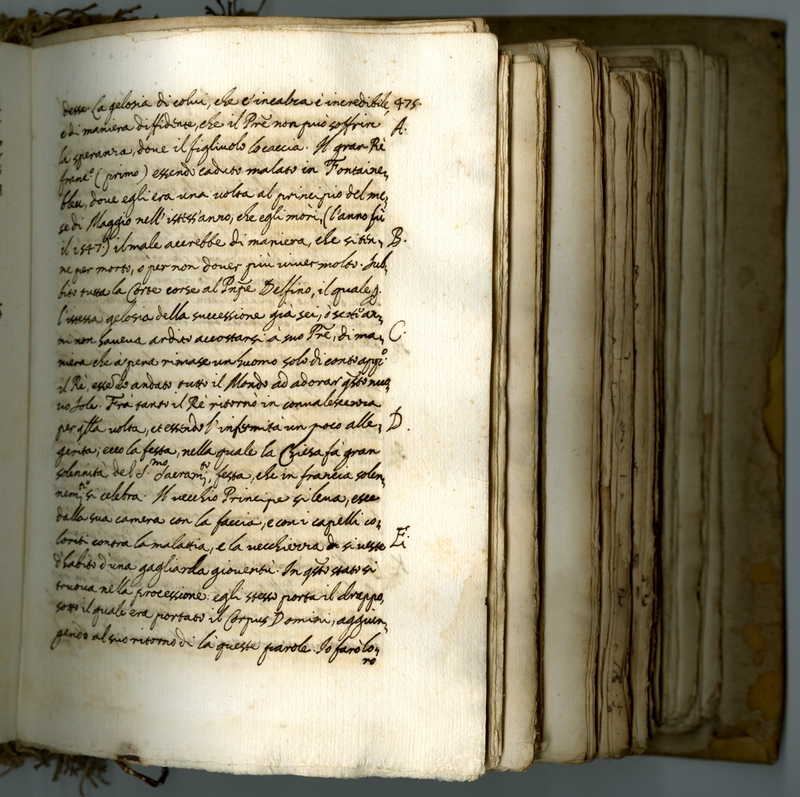 desse la gelosia di colui, che c'incalza è incredibile, 475.
e di maniera diffidente, che il Prē non può soffrire A.
la speranza, dove il figliuolo lo caccia. Il gran Rè
Franc.º (primo) essendo caduto malato in Fontaine,
bleu, dove egli era una volta al principio del me,
se di Maggio nell'istess'anno, che egli morì, (l'anno fù
il 1547.) il male accrebbe di maniera, che si ten, B.
ne per morto, ò per non dover più viver molto. Sub,
bito tutta la Corte corse al Pnpē Delfino, il quale p.
l'istessa gelosia della successione già sei, ò sett'an,
ni non haveva ardito accostarsi à suo Prē, di ma, C.
niera che à pena rimase un huomo solo di conto app.º
il Rè, essēdo andato tutto il Mondo ad adorar qsto nuo,
vo Sole. Frà tanto il Rè ritornò in convalescenza
per qlla volta, et essendo l'infermità un poco alle, D.
gerita; ecco la festa, nella quale la Chiesa fà gran
solennità del S.mo Sacram.to, festa, che in francia solen,
nem.te si celebra. Il vecchio Principe si leva, esce
dalla sua camera con la faccia, e con i capelli co,
loriti contra la malattia, e la vecchiezza si veste E.
d'habito d'una gagliarda gioventù. In qsto stato si
truova nella processione: egli stesso porta il drappo,
sotto il quale era portato il Corpus Domini, aggiun,
gendo al suo ritorno di là queste parole. Io farò lo,
ro